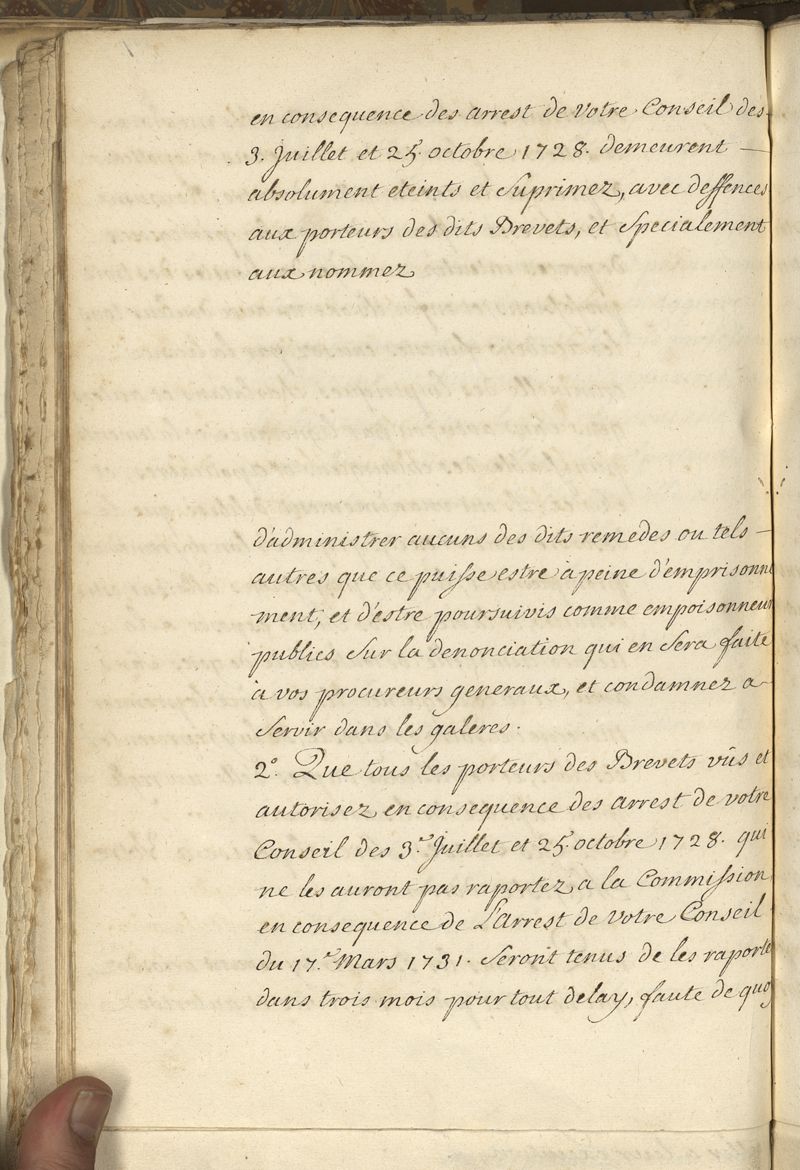 en consequence des arrest de Votre Conseil des
3. Juillet et 25 octobre 1728. demeurent —
absolument eteints et Suprimez, avec deffences
aux porteurs des dits Brevets, et Specialement
aux nommez
d'administrer aucuns des dits remedes ou tels —
autres que ce puisse estre a peine d'emprisonne
ment, et d'estre poursuivis comme empoisonneurs
publics Sur la denonciation qui en Sera faite
à vos procureurs generaux, et condamnez a
Servir dans les galeres.
2°. Que tous les porteurs des Brevets vûs et
autorisez en consequence des arrest de votre
Conseil des 3.e Juillet et 25. octobre 1728. qui
ne les auront pas raportez a la Commission
en consequence de L'arrest de votre Conseil
du 17.e Mars 1731. Seront tenus de les raporte
dans trois mois pour tout delay, faute de quoy